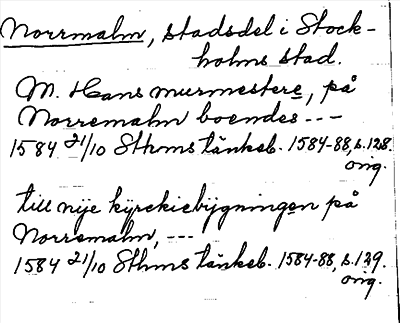 Norrmalm, stadsdel i Stock-
holms stad.
M. Hans murmestere, på
Norremalm boendes ---
1584 21/10 Sthms tänkeb. 1584-88, s. 128.
orig.
till nije kyrckiebygningen på
Norremalm, ---
1584 21/10 Sthms tänkeb. 1584-88, s. 129.
orig.